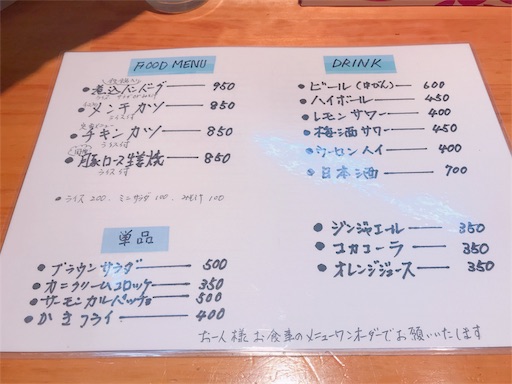 FOOD MENU
煮込ハンバーグ 950
メンチカツ 850
ライス付
チキンカツ 850
ライス付
豚ロース生姜焼 850
ライス付
ライス200. ミニサラダ 100.
単品
ブラウンサラダ 500
カニクリームコロッケ 350
サーモンカルパッチョ 500
かきフライ 400
DRINK
ビール(中びん) 600
ハイボール 450
レモンサワー 400
梅酒サワー 450
ウーロンハイ 400
日本酒 700
ジンジャエール 350
コカコーラ 350
オレンジジュース 350
お一人様お食事のメニューワンオーダーでお願いいたします